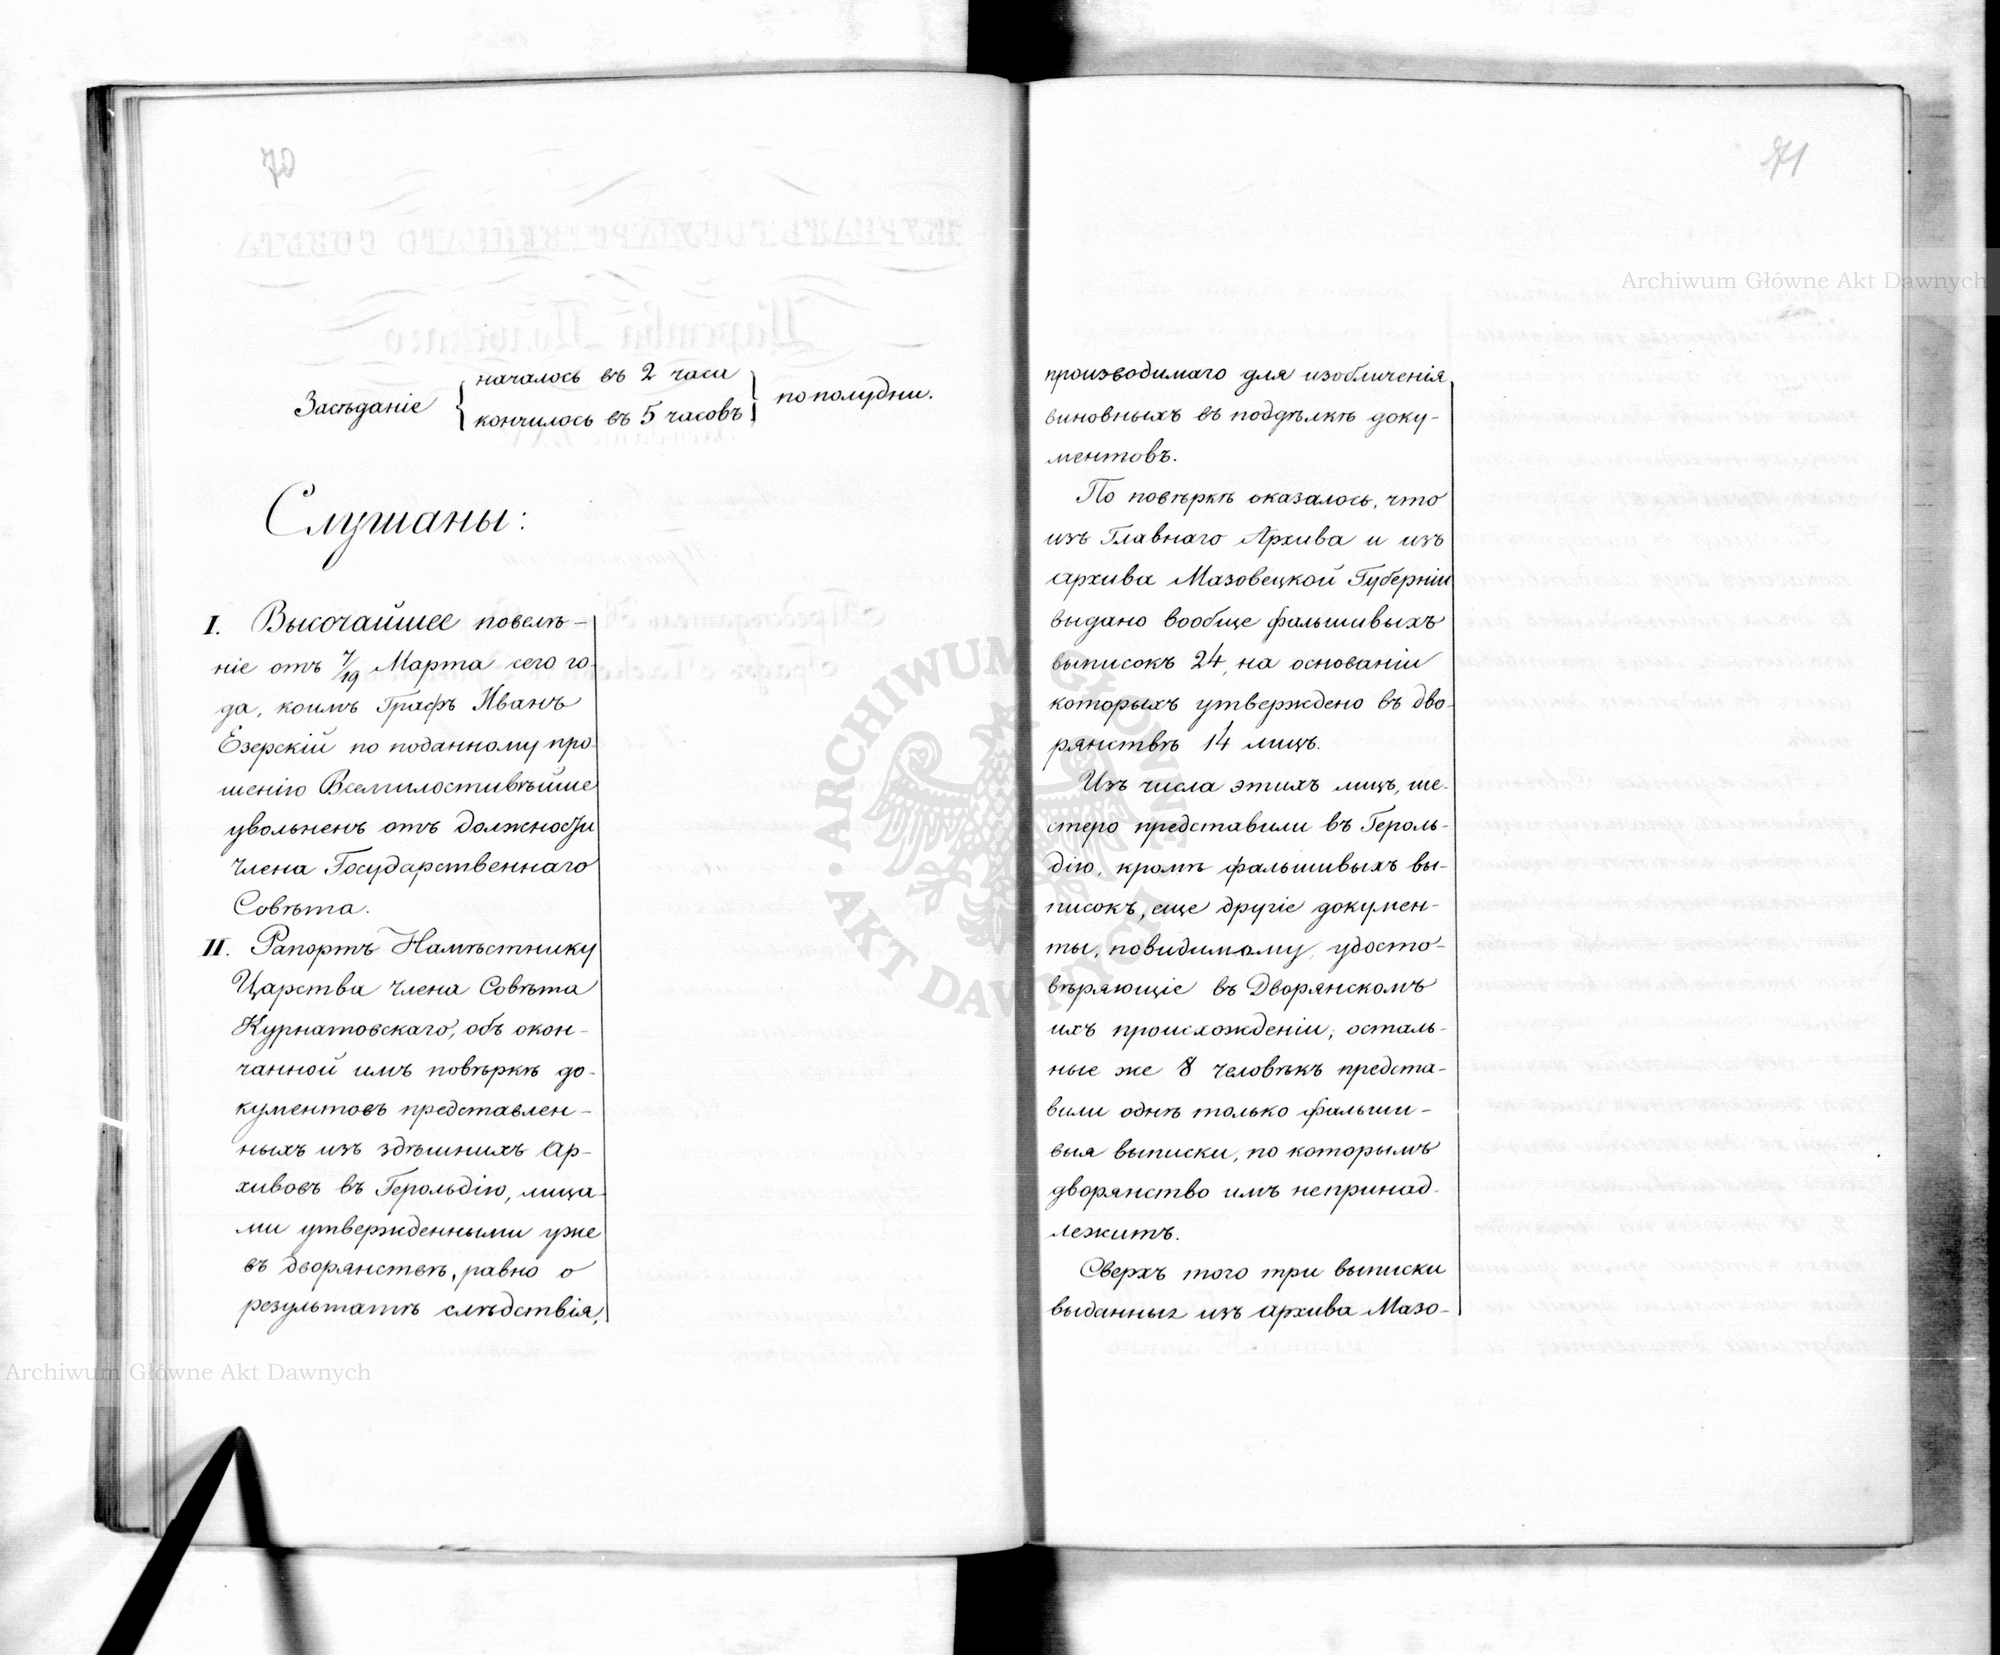 70
Засѣданіе { началось въ 2 часа
кончилось въ 5 часовъ } пополудни.
Слушаны:
I. Высочайшее повелѣ-
ніе отъ 7/19 Марта сего го-
да, коимъ Графъ Иванъ
Езерскій по поданному про-
шенію Всемилостивѣйше
увольненъ отъ должности
члена Государственнаго
Совѣта.
II. Рапортъ Намѣстнику
Царства члена Совѣта
Курнатовскаго, объ окон-
чанной имъ повѣркѣ до-
кументовъ представлен-
ныхъ изъ здѣшнихъ Ар-
хивовъ въ Герольдію, лица-
ми утвержденными уже
въ дворянствѣ, равно о
результатѣ слѣдствія,
71
производимаго для изобличенія
виновныхъ въ поддѣлкѣ доку-
ментовъ.
По повѣркѣ оказалось, что
изъ Главнаго Архива и изъ
архива Мазовецкой Губерніи
выдано вообще фальшивыхъ
выписокъ 24, на основаніи
которыхъ утверждено въ дво-
рянствѣ 14 лицъ.
Изъ числа этихъ лицъ, ше-
стеро представили въ Героль-
дію, кромѣ фальшивыхъ вы-
писокъ, еще другіе докумен-
ты, повидимому, удосто-
вѣряющіе въ Дворянскомъ
ихъ происхожденіи; осталь-
ные же 8 человѣкъ предста-
вили однѣ только фальши-
выя выписки, по которымъ
дворянство имъ непринад-
лежитъ.
Сверхъ того три выписки
выданныя изъ архива Мазо-
Archiwum Główne Akt Dawnych
ARCHIWUM GŁÓWNE AKT DAWNYCH
Archiwum Główne Akt Dawnych